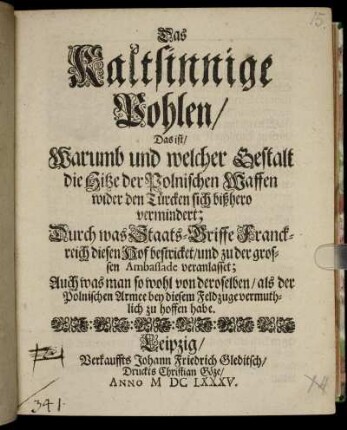 15.
Das
Kaltsinnige
Pohlen/
Das ist/
Warumb und welcher Gestalt
die Hitze der Polnischen Waffen
wider den Türcken sich bißhero
vermindert;
Durch was Staats-Griffe Franck-
reich diesen Hof bestricket/und zu der gros-
sen Ambassade veranlasset;
Auch was man so wohl von deroselben/ als der
Polnischen Armee bey diesem Feldzuge vermuth-
lich zu hoffen habe.
Leipzig/
Verkauffts Johann Friedrich Gleditsch/
Druckts Christian Göze/
ANNO M DC LXXXV.
341.